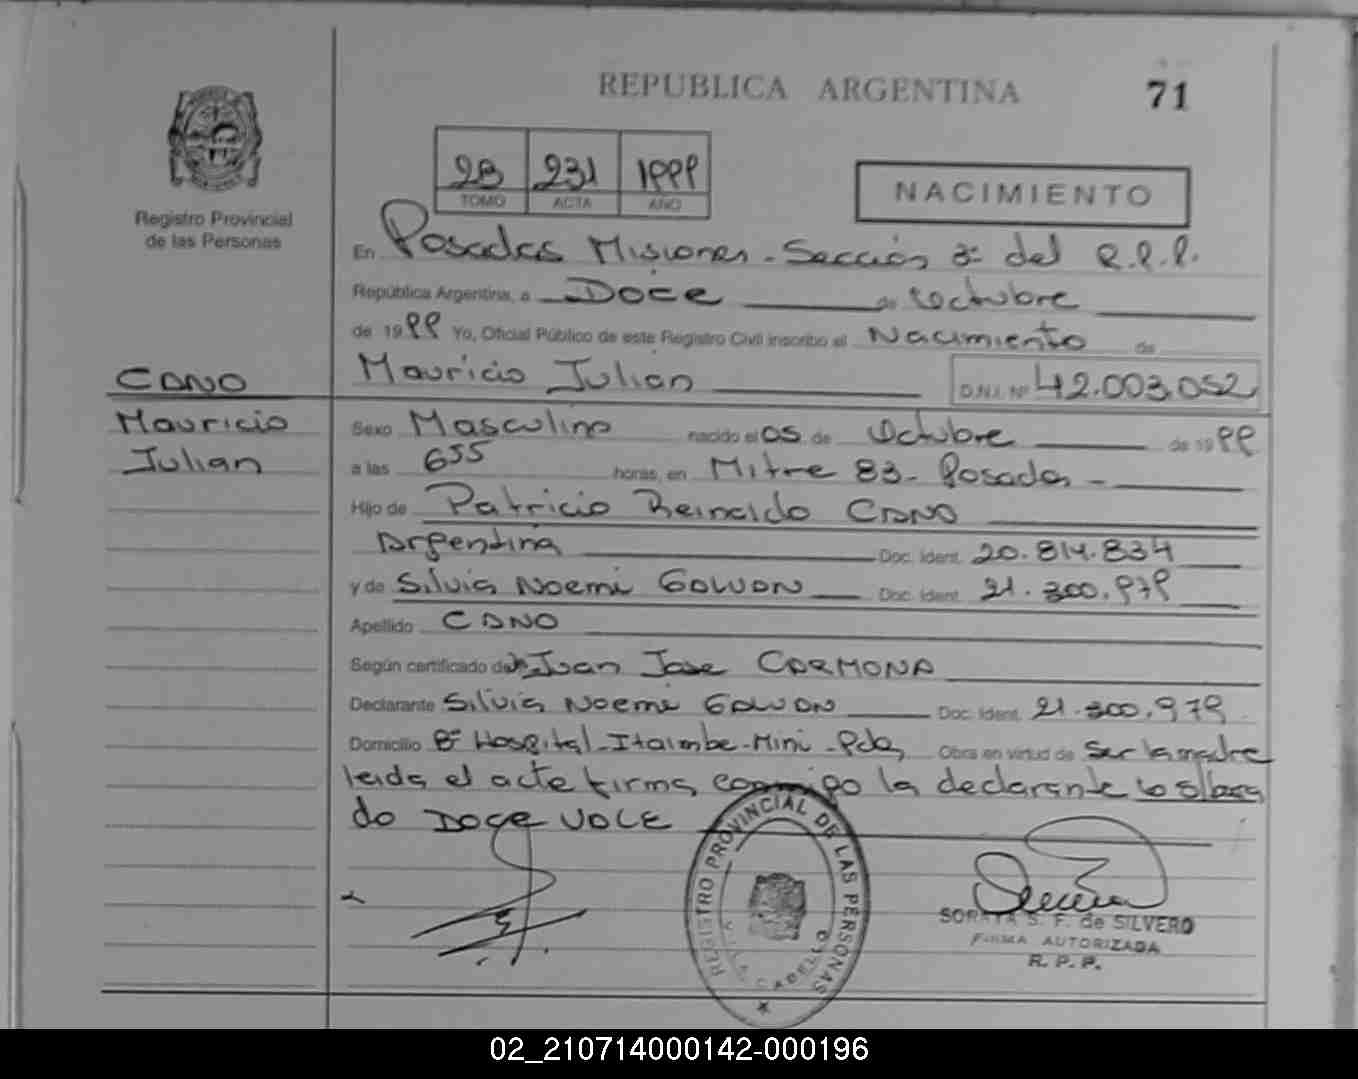 REPUBLICA ARGENTINA
71
Registro Provincial
de las Personas
2B 231 1999
TOMO ACTA AÑO
NACIMIENTO
En Posadas Misiones - Sección 3º del R.P.P.
República Argentina, a Doce de Octubre
de 1999 Yo, Oficial Público de este Registro Civil inscribo el Nacimiento de
Mauricio Julián D.N.I. Nº 42.003.052
CANO
Mauricio
Julian
Sexo Masculino nacido el 05 de Octubre de 1999
a las 655 horas, en Mitre 83 - Posadas -
Hijo de Patricio Reinaldo CANO
Argentina Doc. Ident. 20.814.834
y de Silvia Noemi GALVAN Doc. Ident. 21.300.979
Apellido CANO
Según certificado de Juan Jose CARMONA
Declarante Silvia Noemi GALVAN Doc. Ident. 21.300.979
Domicilio Bº Hospital - Itaimbe - Mini - Pdas Obra en virtud de Ser la madre
leida el acta firma conmigo la declarante lo
do DOCE VALE
REGISTRO PROVINCIAL DE LAS PERSONAS
SORAYA S. F. de SILVERO
FIRMA AUTORIZADA
R. P. P.
02_210714000142-000196